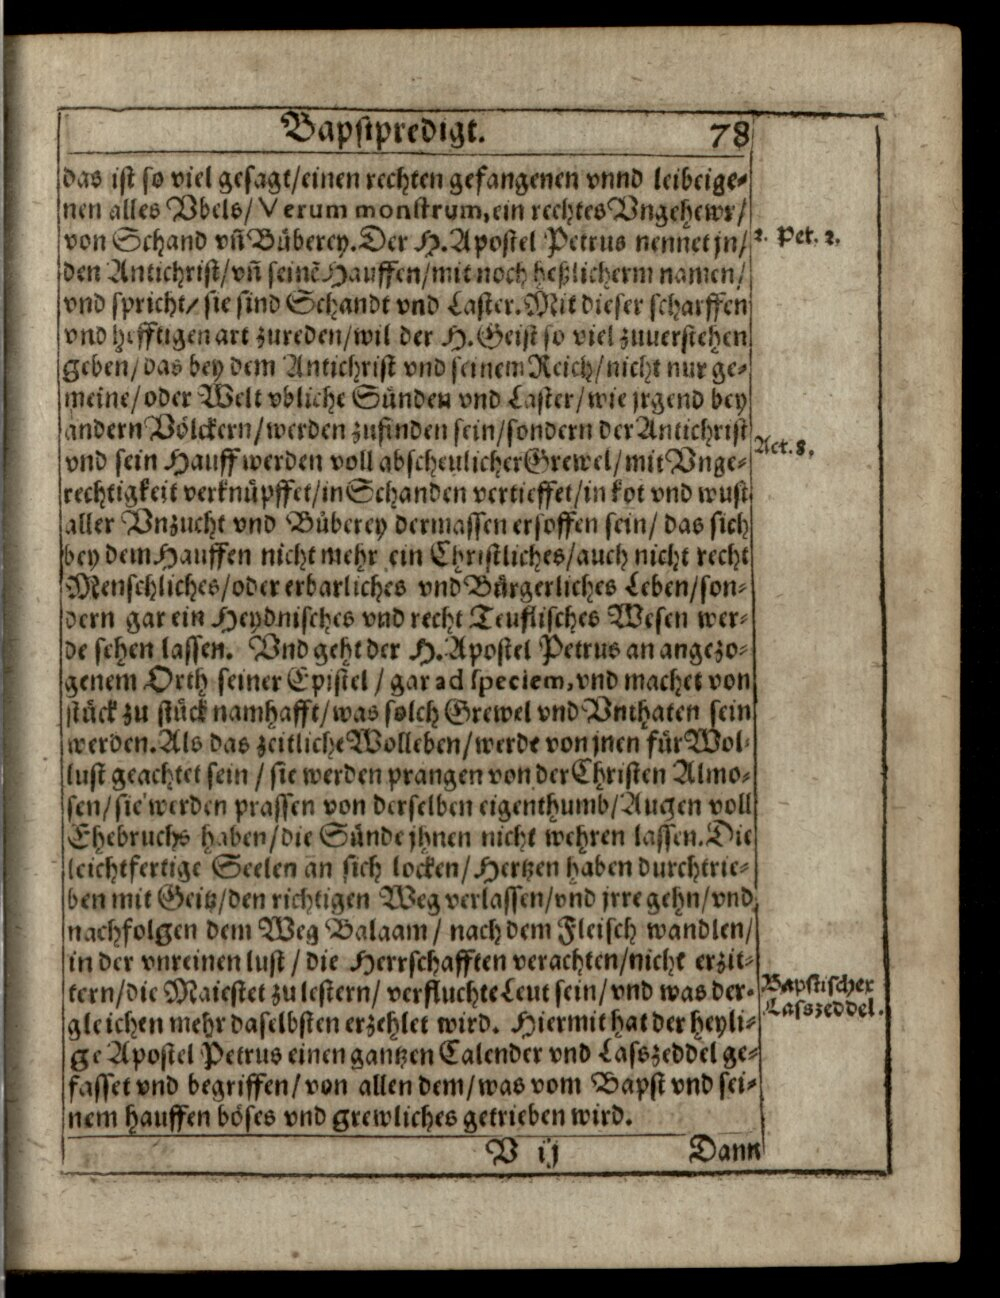 Bapstpredigt. 78
das ist so viel gesagt/einen rechten gefangenen vnnd leibeige-
nen alles Vbels/Verum monstrum, ein rechtes Vngehewr/
von Schand vñ Büberey. Der H. Apostel Petrus nennet jn/
2. Pet. 2.
den Antichrist/vñ seinẽ Hauffen/mit noch heßlicherm namen/
vnd spricht/sie sind Schandt vnd Laster. Mit dieser scharffen
vnd hefftigen art zureden/wil der H. Geist so viel zuuerstehen
geben/das bey dem Antichrist vnd seinem Reich/nicht nur ge-
meine/oder Welt vbliche Sünden vnd Laster/wie jrgend bey
andern Völckern/werden zufinden sein/sondern der Antichrist
Act. 8.
vnd sein Hauff werden voll abscheulicher Grewel/mit Vnge-
rechtigkeit verknüpffet/in Schanden vertieffet/in kot vnd wust
aller Vnzucht vnd Büberey dermassen ersoffen sein/das sich
bey dem Hauffen nicht mehr ein Christliches/auch nicht recht
Menschliches/oder erbarliches vnd Bürgerliches Leben/son-
dern gar ein Heydnisches vnd recht Teuflisches Wesen wer-
de sehen lassen. Vnd geht der H. Apostel Petrus an angezo-
genem Orth seiner Epistel/gar ad speciem, vnd machet von
stück zu stück namhafft/was solch Grewel vnd Vnthaten sein
werden. Als das zeitliche Wolleben/werde von jnen für Wol-
lust geachtet sein/sie werden prangen von der Christen Almo-
sen/sie werden prassen von derselben eigenthumb/Augen voll
Ehebruchs haben/die Sünde jhnen nicht wehren lassen. Die
leichtfertige Seelen an sich locken/Hertzen haben durchtrie-
ben mit Geitz/den richtigen Weg verlassen/vnd jrre gehn/vnd
nachfolgen dem Weg Balaam/nach dem Fleisch wandlen/
in der vnreinen lust/die Herrschafften verachten/nicht erzit-
tern/die Maiestet zu lestern/verfluchte Leut sein/vnd was der-
Bapstischer
Lasszeddel.
gleichen mehr daselbsten erzehlet wird. Hiermit hat der heyli-
ge Apostel Petrus einen gantzen Calender vnd Lasszeddel ge-
fasset vnd begriffen/von allen dem/was vom Bapst vnd sei-
nem hauffen böses vnd grewliches getrieben wird.
V ij Dann